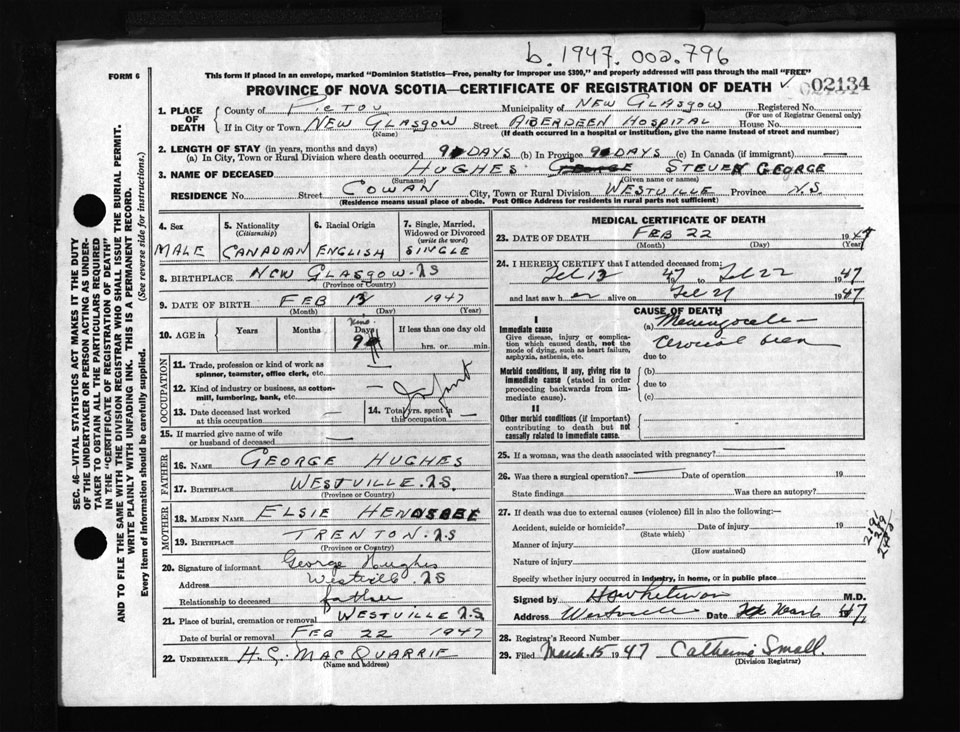 b. 1947. 002.796
FORM 6
This form if placed in an envelope, marked "Dominion Statistics—Free, penalty for improper use $300," and properly addressed will pass through the mail "FREE"
PROVINCE OF NOVA SCOTIA—CERTIFICATE OF REGISTRATION OF DEATH ✓ 02134
1. PLACE OF DEATH
County of PICTOU Municipality of NEW GLASGOW Registered No.
(For use of Registrar General only)
If in City or Town NEW GLASGOW Street ABERDEEN HOSPITAL House No.
(Name) (If death occurred in a hospital or institution, give the name instead of street and number)
2. LENGTH OF STAY (in years, months and days)
(a) In City, Town or Rural Division where death occurred 9 DAYS (b) In Province 9 DAYS (c) In Canada (if immigrant) —
3. NAME OF DECEASED HUGHES GEORGE STEVEN GEORGE
(Surname) (Given name or names)
RESIDENCE No. Street COWAN City, Town or Rural Division WESTVILLE Province N.S
(Residence means usual place of abode. Post Office Address for residents in rural parts not sufficient)
4. Sex
MALE
5. Nationality (Citizenship)
CANADIAN
6. Racial Origin
ENGLISH
7. Single, Married, Widowed or Divorced (write the word)
SINGLE
8. BIRTHPLACE NEW GLASGOW. NS
(Province or Country)
9. DATE OF BIRTH FEB 13 1947
(Month) (Day) (Year)
10. AGE in Years Months Days If less than one day old
9 hrs. or min.
OCCUPATION
11. Trade, profession or kind of work as spinner, teamster, office clerk, etc. —
12. Kind of industry or business, as cotton-mill, lumbering, bank, etc. — Infant
13. Date deceased last worked at this occupation —
14. Total yrs. spent in this occupation —
15. If married give name of wife or husband of deceased —
FATHER
16. NAME GEORGE HUGHES
17. BIRTHPLACE WESTVILLE. NS.
(Province or Country)
MOTHER
18. MAIDEN NAME ELSIE HENDSBEE
19. BIRTHPLACE TRENTON. NS
(Province or Country)
20. Signature of informant George Hughes
Address Westville NS
Relationship to deceased father
21. Place of burial, cremation or removal WESTVILLE NS.
Date of burial or removal FEB 22 1947
22. UNDERTAKER H.G. MACQUARRIE
(Name and address)
MEDICAL CERTIFICATE OF DEATH
23. DATE OF DEATH FEB 22 1947
(Month) (Day) (Year)
24. I HEREBY CERTIFY that I attended deceased from:
Feb 13 47 to Feb 22 1947
and last saw h er alive on Feb 21 1947
CAUSE OF DEATH
I
Immediate cause
Give disease, injury or complication which caused death, not the mode of dying, such as heart failure, asphyxia, asthenia, etc.
(a) Meningocele
Cervical
due to
Morbid conditions, if any, giving rise to immediate cause (stated in order proceeding backwards from immediate cause).
(b)
due to
(c)
II
Other morbid conditions (if important) contributing to death but not causally related to immediate cause.
25. If a woman, was the death associated with pregnancy? —
26. Was there a surgical operation? — Date of operation 19
State findings Was there an autopsy?
27. If death was due to external causes (violence) fill in also the following:—
Accident, suicide or homicide? Date of injury 19
(State which)
Manner of injury
(How sustained)
Nature of injury
Specify whether injury occurred in industry, in home, or in public place
Signed by M.D.
Address Westville Date 47
28. Registrar's Record Number
29. Filed March 15 1947 Catherine Small.
(Division Registrar)
SEC. 46—VITAL STATISTICS ACT MAKES IT THE DUTY OF THE UNDERTAKER OR PERSON ACTING AS UNDERTAKER TO OBTAIN ALL THE PARTICULARS REQUIRED IN THE "CERTIFICATE OF REGISTRATION OF DEATH" AND TO FILE THE SAME WITH THE DIVISION REGISTRAR WHO SHALL ISSUE THE BURIAL PERMIT.
WRITE PLAINLY WITH UNFADING INK. THIS IS A PERMANENT RECORD.
Every item of information should be carefully supplied. (See reverse side for instructions.)